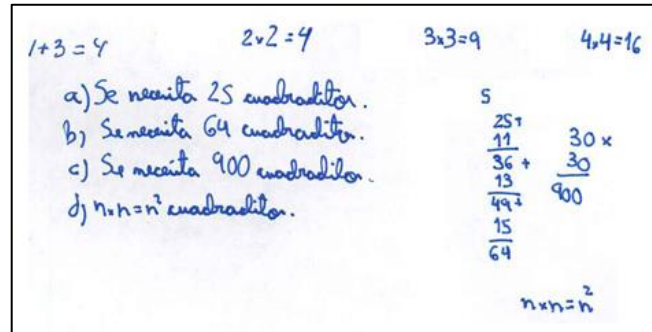 1+3=4 2×2=4 3×3=9 4×4=16
a) Se necesita 25 cuadraditos.
b) Se necesita 64 cuadraditos.
c) Se necesita 900 cuadraditos.
d) n×n=n² cuadraditos.
5
25+
11
36+
13
49+
15
64
30×
30
900
n×n=n²